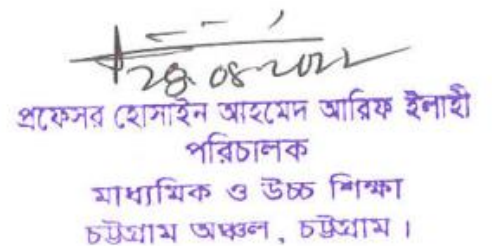 28.08.2022
প্রফেসর হোসাইন আহমেদ আরিফ ইলাহী
পরিচালক
মাধ্যমিক ও উচ্চ শিক্ষা
চট্টগ্রাম অঞ্চল, চট্টগ্রাম।